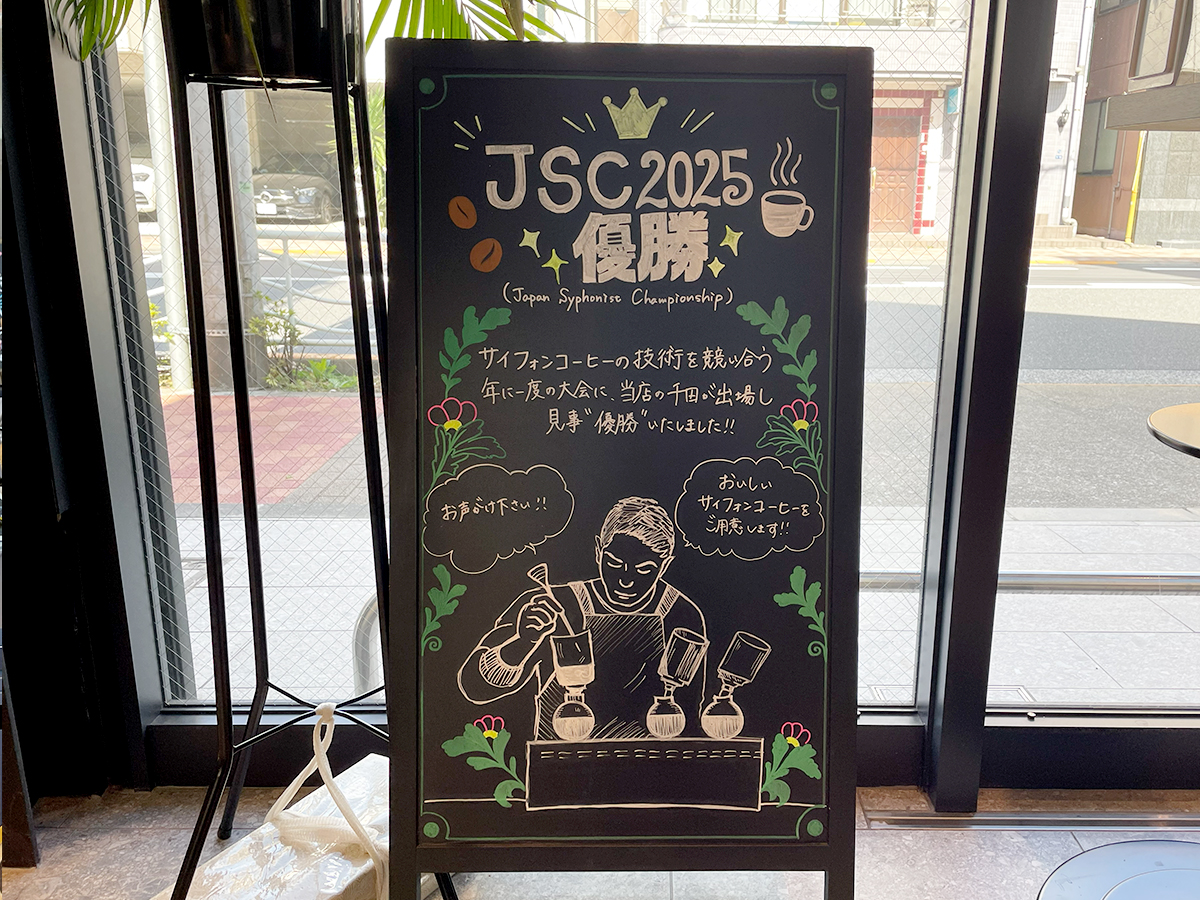 JSC2025
優勝
(Japan Syphonist Championship)
サイフォンコーヒーの技術を競い合う
年に一度の大会に、当店の千田が出場し
見事"優勝"いたしました!!
お声がけ下さい!!
おいしい
サイフォンコーヒーを
ご用意します!!